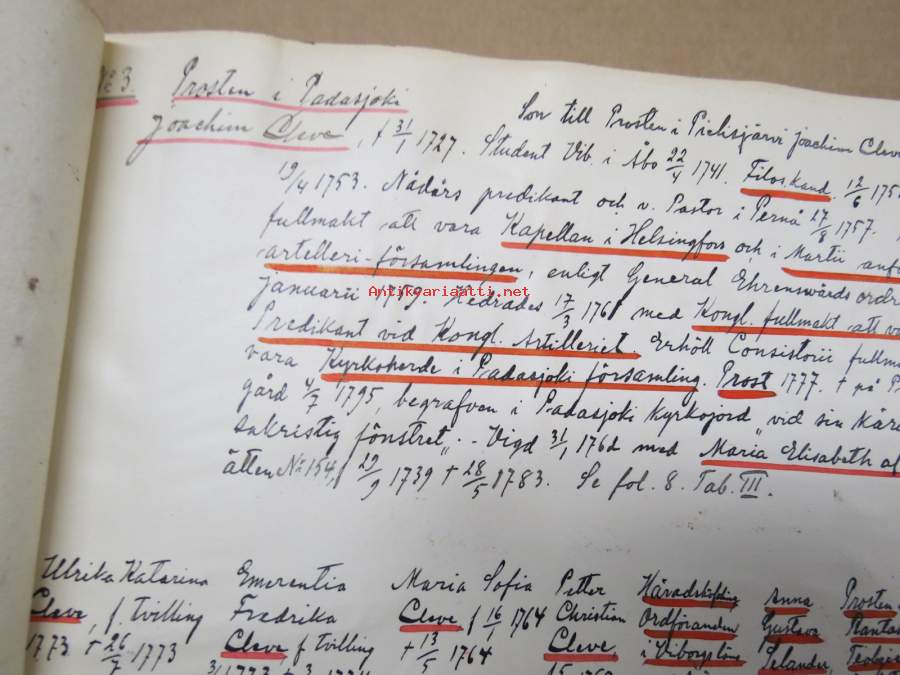 No 3. Prosten i Padasjoki
Joachim Cleve, f 31/1 1727. Student Vib. i Åbo 22/4 1741. Filos. Kand. 12/6 175
Son till Prosten i Pielisjärvi Joachim Cleve
19/4 1753. Nådårs predikant och v. Pastor i Pernå 27/8 1757.
fullmakt att vara Kapellan i Helsingfors och i Martii anf
artelleri-församlingen, enligt General Ehrensvärds ord
januarii 1759. Hedrades 17/3 1761 med Kongl. fullmakt att va
Antikvariaatti.net
Predikant vid Kongl. Artilleriet. Erhöll Consistorii fullm
vara Kyrkoherde i Padasjoki församling. Prost 1777. † på P
gård 4/7 1795, begrafven i Padasjoki Kyrkojord "vid sin kära
sakristig fönstret". - Vigd 31/1 1762 med Maria Elisabeth af
ätten No 154, f 29/9 1739 † 28/5 1783. Se fol. 8. Tab. III.
Ulrika Katarina
Cleve, f. tvilling
1773 † 26/7 1773
Emerentia
Fredrika
Cleve, f tvilling
Maria Sofia
Cleve f 16/1 1764
† 13/5 1764
Petter
Christian
Cleve,
Häradshöfding
Ordföranden
i Viborgs län
Anna
Gustava
Pelander,
Prosten